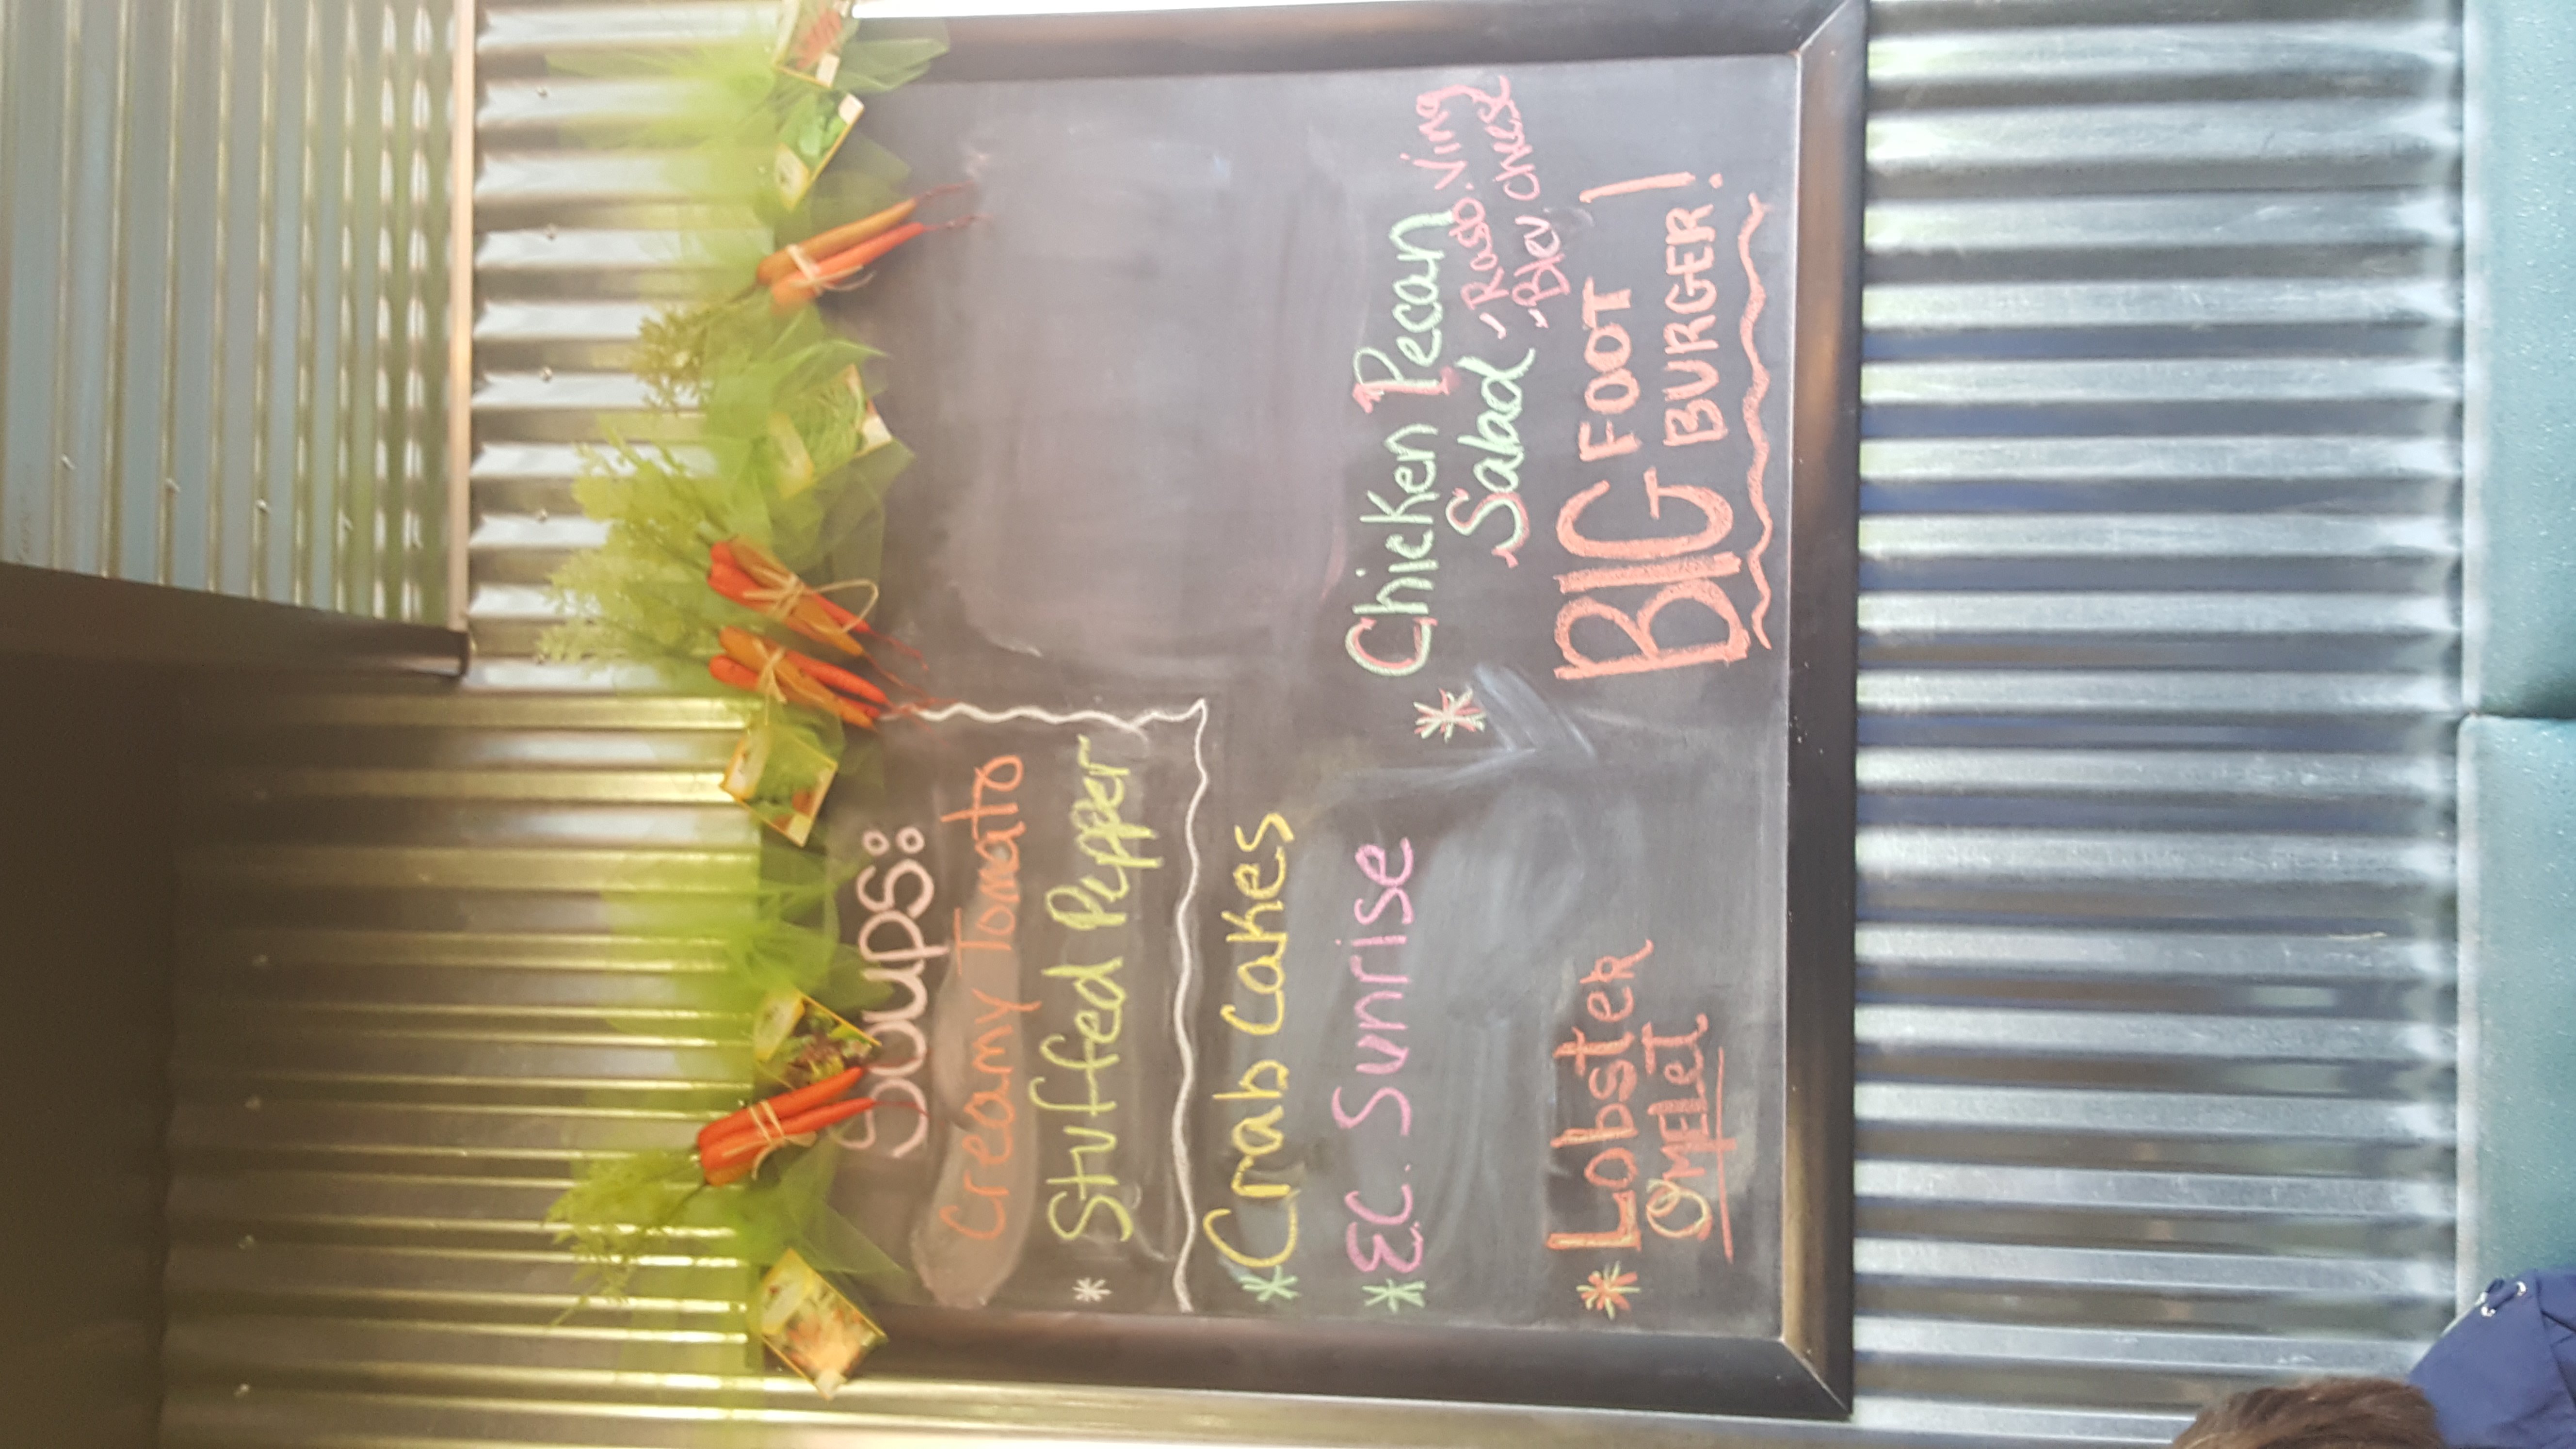 Soups:
Creamy Tomato
* Stuffed Pepper
* Crab Cakes
* EC. Sunrise
* Lobster
Omelet
* Chicken Pecan
Salad
- Rasb. Ving
- Bleu chese
BIG FOOT
BURGER!